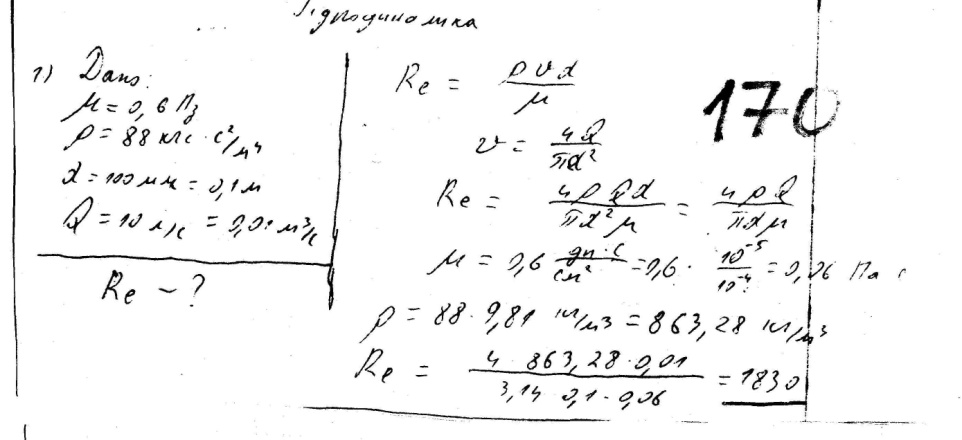 Гидродинамика
1) Дано:
μ = 0,6 Пз
ρ = 88 кгс · с²/м⁴
d = 100 мм = 0,1 м
Q = 10 л/с = 0,01 м³/с
Re - ?
Re = ρvd/μ
170
v = 4Q/πd²
Re = 4ρQd/πd²μ = 4ρQ/πdμ
μ = 0,6 дн·с/см² = 0,6 · 10⁻⁵/10⁻⁴ = 0,06 Па с
ρ = 88 · 9,81 кг/м³ = 863,28 кг/м³
Re = 4 · 863,28 · 0,01/3,14 · 0,1 · 0,06 = 1830